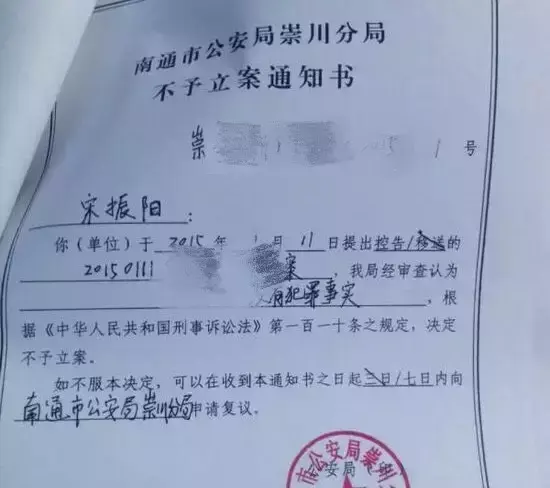 南通市公安局崇川分局
不予立案通知书
崇 号
宋振阳：
你（单位）于2015年1月11日提出控告/移送的
20150111 案，我局经审查认为
犯罪事实，根
据《中华人民共和国刑事诉讼法》第一百一十条之规定，决定
不予立案。
如不服本决定，可以在收到本通知书之日起三日/七日内向
南通市公安局崇川分局申请复议。
市公安局崇川
公安局（印）